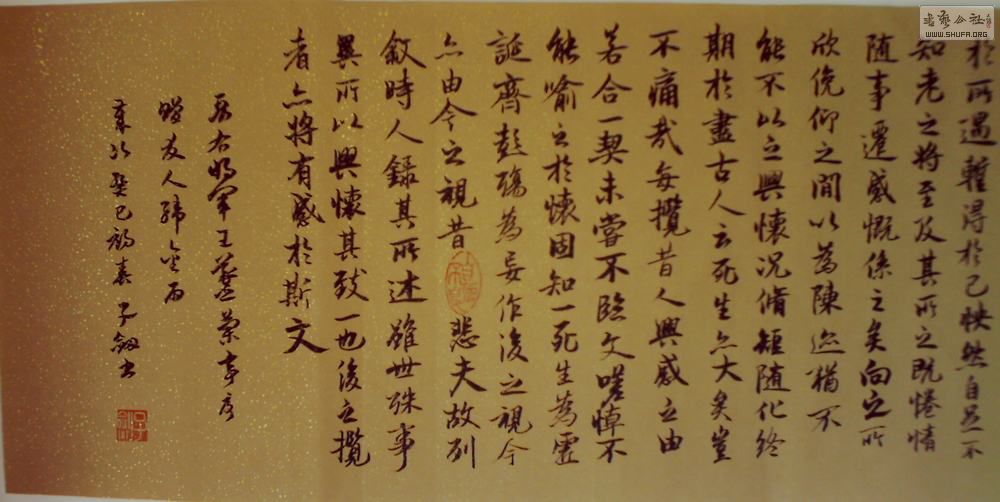 於所遇暫得於己怏然自足不
知老之將至及其所之既惓情
随事遷感慨係之矣向之所
欣俛仰之間以為陳迹猶不
能不以之興懷況脩短随化終
期於盡古人云死生亦大矣豈
不痛哉每攬昔人興感之由
若合一契未嘗不臨文嗟悼不
能喻之於懷固知一死生為虛
誕齊彭殤為妄作後之視今
亦由今之視昔悲夫故列
敘時人錄其所述雖世殊事
異所以興懷其致一也後之攬
者亦將有感於斯文
右将军王羲蘭亭序
贈友人
歲次癸巳初春子劍書
書藝公社
WWW.SHUFA.ORG